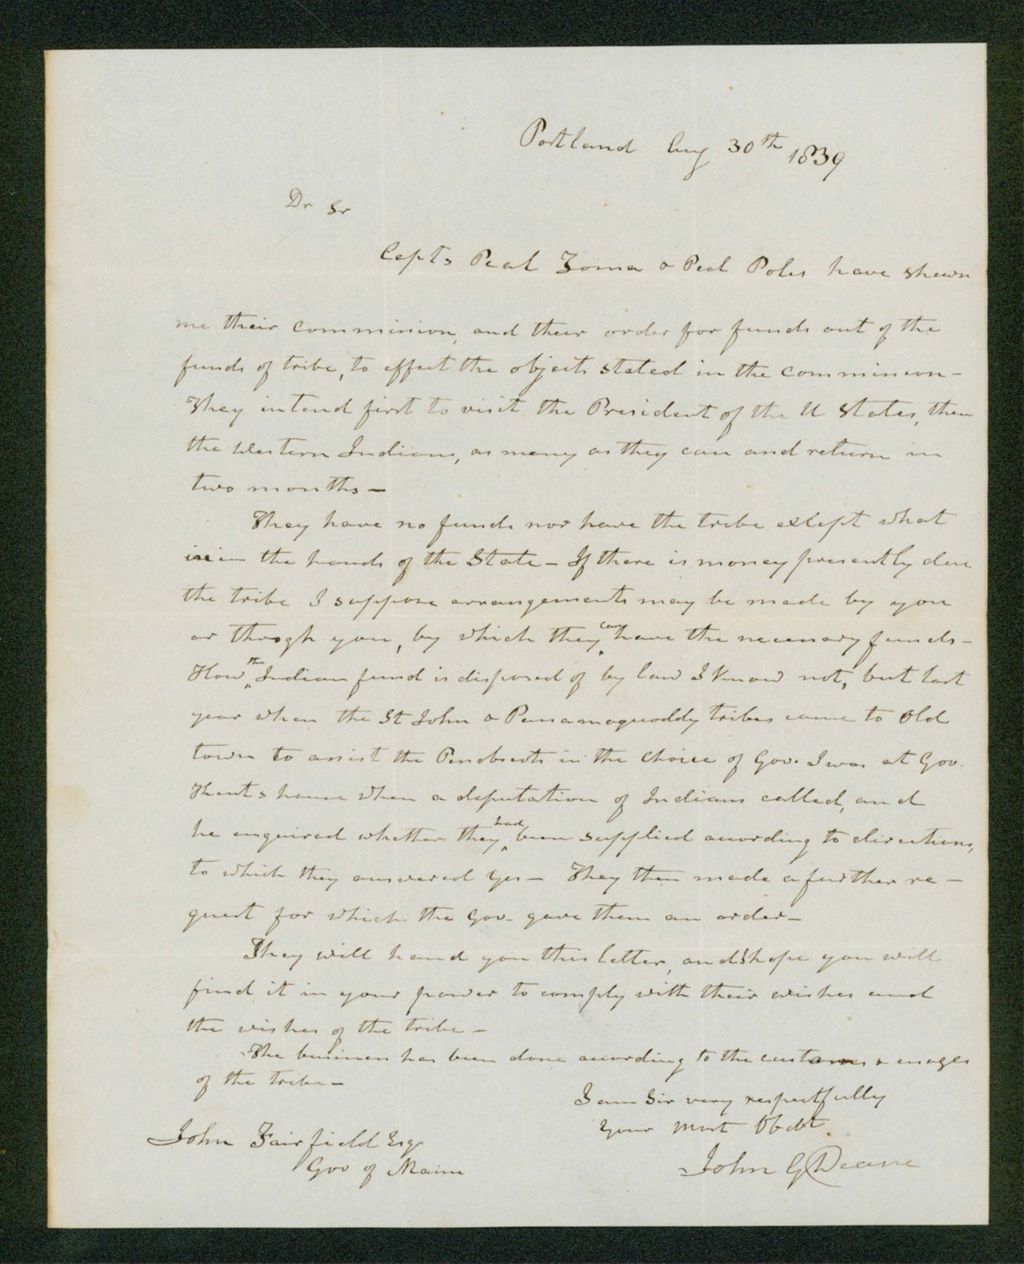 Portland Aug 30th 1839
Dr Sr
Capts Peal Toma & Peal Poles have shewn
me their commission, and their order for funds out of the
funds of tribe, to effect the objects stated in the commission -
They intend first to visit the President of the U States, then
the Western Indians, as many as they can and return in
two months -
They have no funds nor have the tribe except what
is in the hands of the State - If there is money presently due
the tribe I suppose arrangements may be made by you
or throgh you, by which they can have the necessary funds -
How the Indian fund is disposed of by law I know not, but last
year when the St John & Passamaquoddy tribes came to Old
town to assist the Penobscots in the choice of Gov. I was at Gov.
Kents house when a deputation of Indians called, and
he enquired whether they had been supplied according to directions,
to which they answered yes - They then made a further re -
quest for which the Gov. gave them an order -
They will hand you this letter, and I hope you will
find it in your power to comply with their wishes and
the wishes of the tribe -
The business has been done according to the customs & usages
of the tribe -
I am Sir very respectfully
Your Most Obdt
John G Deane
John Fairfield Esqr
Gov of Maine